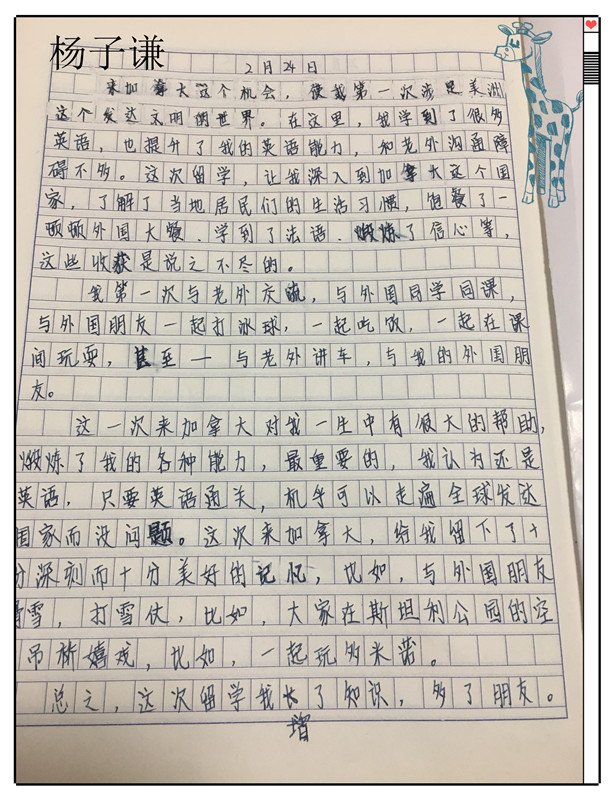 杨子谦
2月24日
来加拿大这个机会，使我第一次涉足美洲
这个发达文明的世界。在这里，我学到了很多
英语，也提升了我的英语能力，和老外沟通障
碍不多。这次留学，让我深入到加拿大这个国
家，了解了当地居民们的生活习惯，饱餐了一
顿顿外国大餐、学到了法语、煅炼了信心等，
这些收获是说之不尽的。
我第一次与老外交流，与外国同学同课，
与外国朋友一起打冰球，一起吃饭，一起在课
间玩耍，甚至——与老外讲车，与我的外国朋
友。
这一次来加拿大对我一生中有很大的帮助，
煅炼了我的各种能力，最重要的，我认为还是
英语，只要英语通关，机乎可以走遍全球发达
国家而没问题。这次来加拿大，给我留下了十
分深刻而十分美好的记忆，比如，与外国朋友
滑雪，打雪仗，比如，大家在斯坦利公园的空
吊桥嬉戏，比如，一起玩多米诺。
总之，这次留学我长了知识，多了朋友。
增